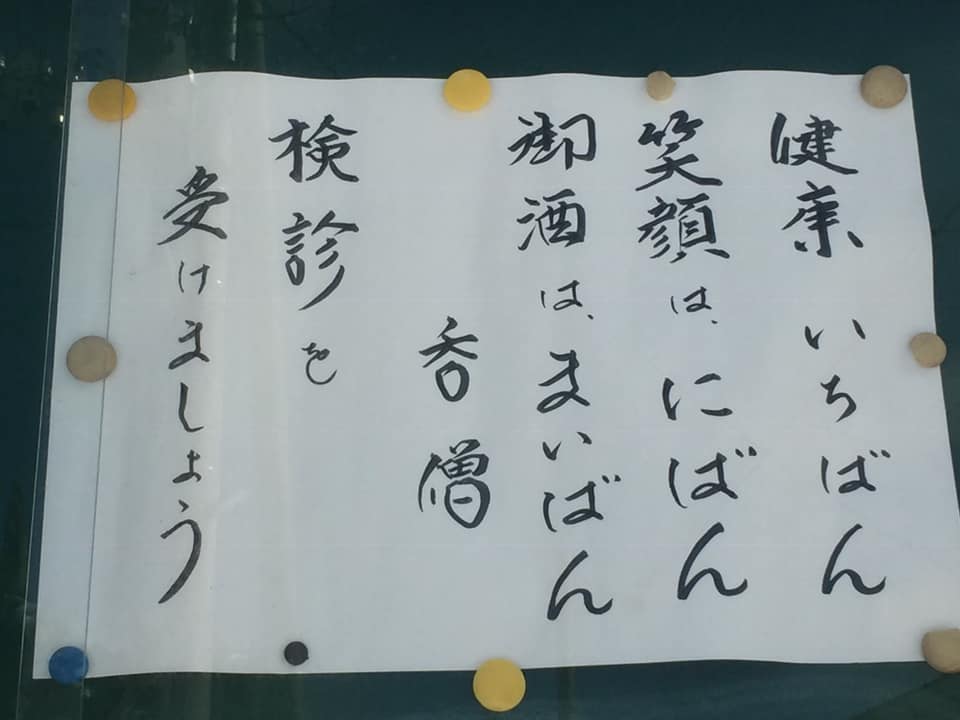 健康いちばん
笑顔は、にばん
御酒は、まいばん
呑僧
検診を
受けましょう